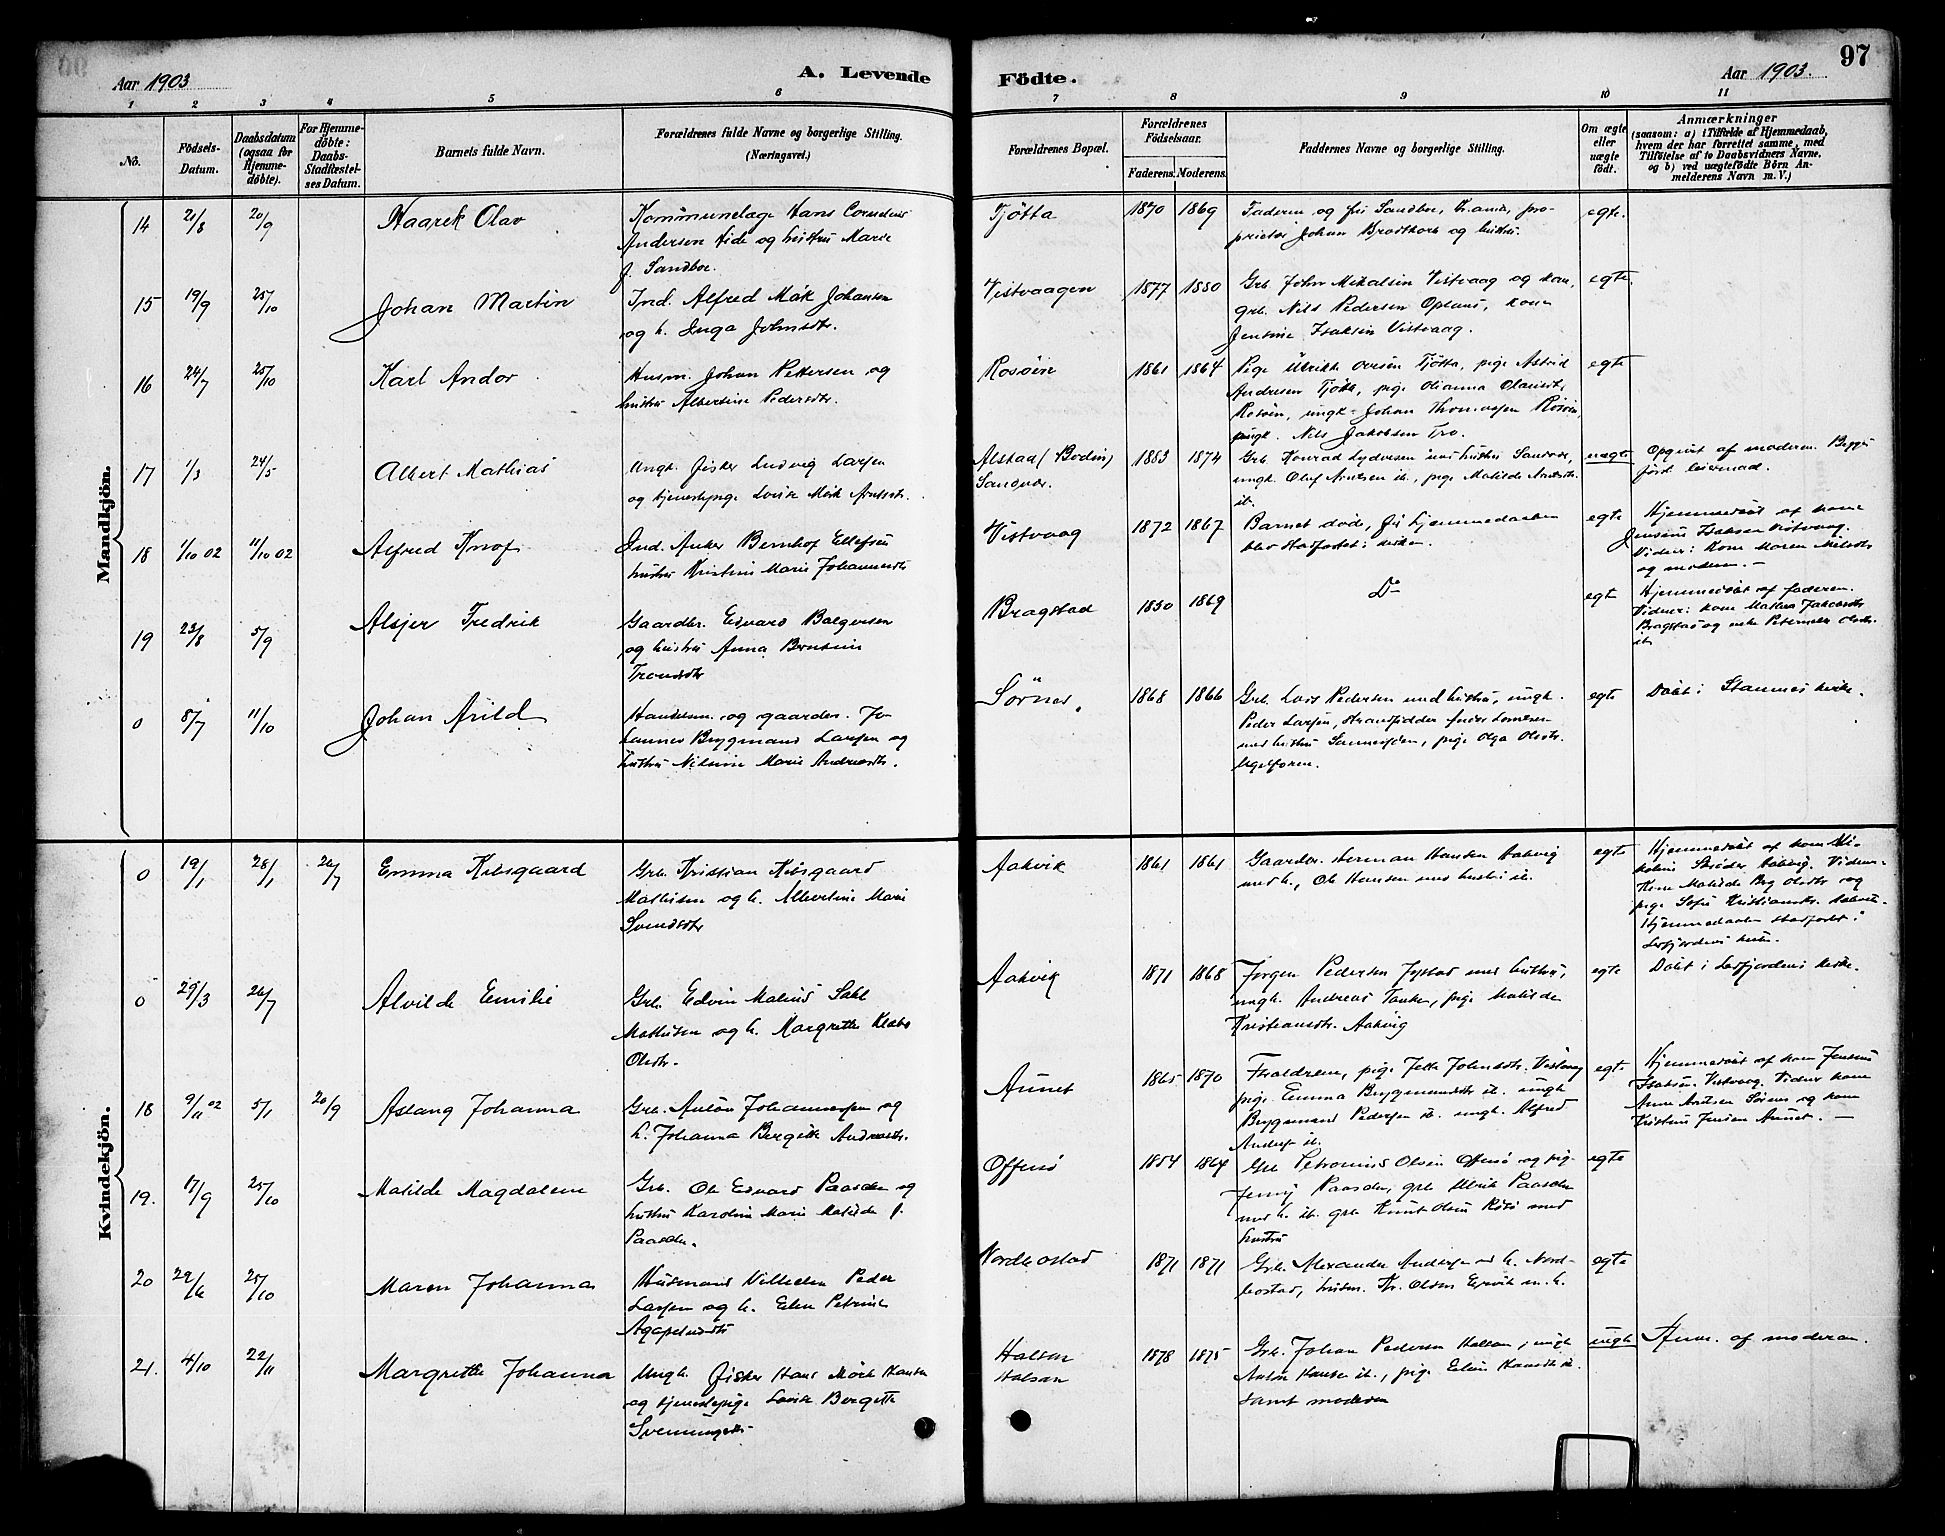 Aar 1903
A. Levende
Födte.
Aar 1903.
97
1 2 3 4 5 6 7 8 9 10 11
No.
Födsels-
Datum.
Daabsdatum
(ogsaa for
Hjemme-
döbte).
For Hjemme-
döbte:
Daabs-
Stadfæstel-
ses Datum.
Barnets fulde Navn.
Forældrenes fulde Navne og borgerlige Stilling.
(Næringsvei.)
Forældrenes Bopæl.
Forældrenes
Födselsaar.
Faderens.
Moderens.
Faddernes Navne og borgerlige Stilling.
Om ægte
eller
uægte
født.
Anmærkninger
(saasom: a) i Tilfælde af Hjemmedaab,
hvem der har forrettet samme, med
Tilföielse af to Daabsvidners Navne,
og b) ved uægtefödte Börn An-
melderens Navn m. V.)
Mandkjön.
14 21/8 20/9 Haarek Olav
Kommunelæge Hans Cornelius
Andersen Hide og hustru Marie
f. Sandboe.
Tjötta 1870 1869
Faderen og frk Sandboe, Kr.ania, pro-
prietær Johan Brodtkorb og hustru.
egte.
15 19/9 25/10 Johan Martin
Ind. Alfred Mók Johansen
og h. Inga Johnsdtr.
Vistvaagen 1877 1880
Grb. John Mikalsen Vistvaag og kone,
grb. Nils Pedersen Oplans, kone
Jensine Isaksen Vistvaag.
egte.
16 24/7 25/10 Karl Andor
Husm. Johan Pettersen og
hustru Albertine Pedersdtr.
Rosöin 1861 1864
Pige Ulrikke Ovesen Tjötta, pige Astrid
Andresen Tjötta, pige Olianna Olausdt,
Rosöen, ungk. Johan Thomassen Rosöen,
ungk. Nils Jakobsen Tro.
egte
17 1/3 24/5 Albert Mathias
Ungk. fisker Ludvig Larsen
og tjenestepige Lovise Mörk Arntsdtr.
Alstad (Bodin)
Sandvær.
1883 1874
Grb. Konrad Lydersen med hustru Sandvær,
ungk. Oluf Arntsen ib., pige Matilde Arntsdtr.
ib.
uegte
Opgivet af moderen. Begges
förste leiermaal.
18 1/10 02 11/10 02 Alfred Knof
Ind. Anker Bernhof Ellefsen
hustru Kristine Marie Johannesdtr
Vistvaag 1872 1867
Barnet döde, för hjemmedaaben
blev stadfæstet i kirken.
egte
Hjemmedöbt af kone
Jensine Isaksen Vistvaag.
Vidner: Kone Maren Nilsdtr
og moderen. -
19 23/8 5/9 Alsjer Fredrik
Gaardbr. Edvard Bolgersen
og hustru Anna Berntine
Trondsdtr
Bragstad 1850 1869
Do
egte
Hjemmedöbt af faderen.
Vidner: kone Mathea Jakobsdtr
Bragstad og enke Petrnelle Olsdtr.
ib.
0 8/7 11/10 Johan Arild
Handelsm. og gaardbr. Jo-
hannes Brygmand Larsen og
hustru Nilsine Marie Andreasdtr.
Sörnes. 1868 1866
Grb. Lars Pedersen med hustru, ungk.
Peder Larsen, strandsidder Anders Lorntsen
med hustru Sannesjöen, pige Olga Olsdtr.
egte
Döbt i Stamnes kirke.
Kvindekjön.
0 19/1 28/1 26/7 Emma Kibsgaard
Grb. Kristian Kibsgaard
Mathisen og h. Albertine Marie
Svendsdtr
Aakvik 1861 1861
Gaardbr. Herman Hansen Aakvig
med h., Ole Hansen med hustru ib.
egte
Hjemmedöbt af kone
Aakvig. Vidner:
Kone Matilde Berg Olsdtr og
pige Sofie Kristiansdtr. Aakvik.
Hjemmedaaben stadfæstet i
Leirfjordens kirke.
0 29/3 26/7 Alvilde Emilie
Grb. Edvin Malius Dahl
Mathisen og h. Margrethe Klæbo
Olsdtr.
Aakvik 1871 1868
Jörgen Pedersen Jystad med hustru,
ungk. Andreas , pige Matilde
Kristiansdtr. Aakvig
egte
Döbt i Leirfjordens kirke.
18 9/11 02 5/1 20/9 Aslaug Johanna
Grb. Anton Johannessen og
h. Johanna Bergitte Andreasdtr.
Aunet 1865 1870
Forældrene, pige Jette Johnsdtr. Vistvaag
pige Emma Brygmandsdtr ib. ungk
Brygmand Pedersen ib. ungk. Alfred
Anders ib.
egte
Hjemmedöbt af kone Jensine
Isaksen Vistvaag. Vidner kone
Anne Arntsen Sörnes og kone
Kristine Jensen Aunet. -
19. 17/9 25/10 Matilde Magdalene
Grb. Ole Edvard Paasche og
hustru Karoline Marie Matilde f.
Paasche.
Offersö 1854 1864
Grb Petronius Olsen Offersö og pige
Jenny Paasche, grb Ulrik Paasche
med h. ib. grb Knut Olsen Rösö med
hustru
egte
20 22/6 25/10 Maren Johanna
Husmand Vilhelm Peder
Larsen og h. Elen Petrine
Agapetusdtr
Nordbostad 1871 1871
Grb. Alexander Andersen m h. Nord-
bostad, husm. Kr. Olsen Eervik m. h.
egte
21. 4/10 22/11 Margrethe Johanna
Ungk. fisker Hans Mörk Hansen
og tjenestepige Lovise Bergitte
Sveiningsdtr
Halsan
Halsan
1878 1875
Grb. Johan Pedersen Halsan, ungk
Anton Hansen ib., pige Elen Hansdtr ib.
samt moderen
uegte
Anm. af moderen.